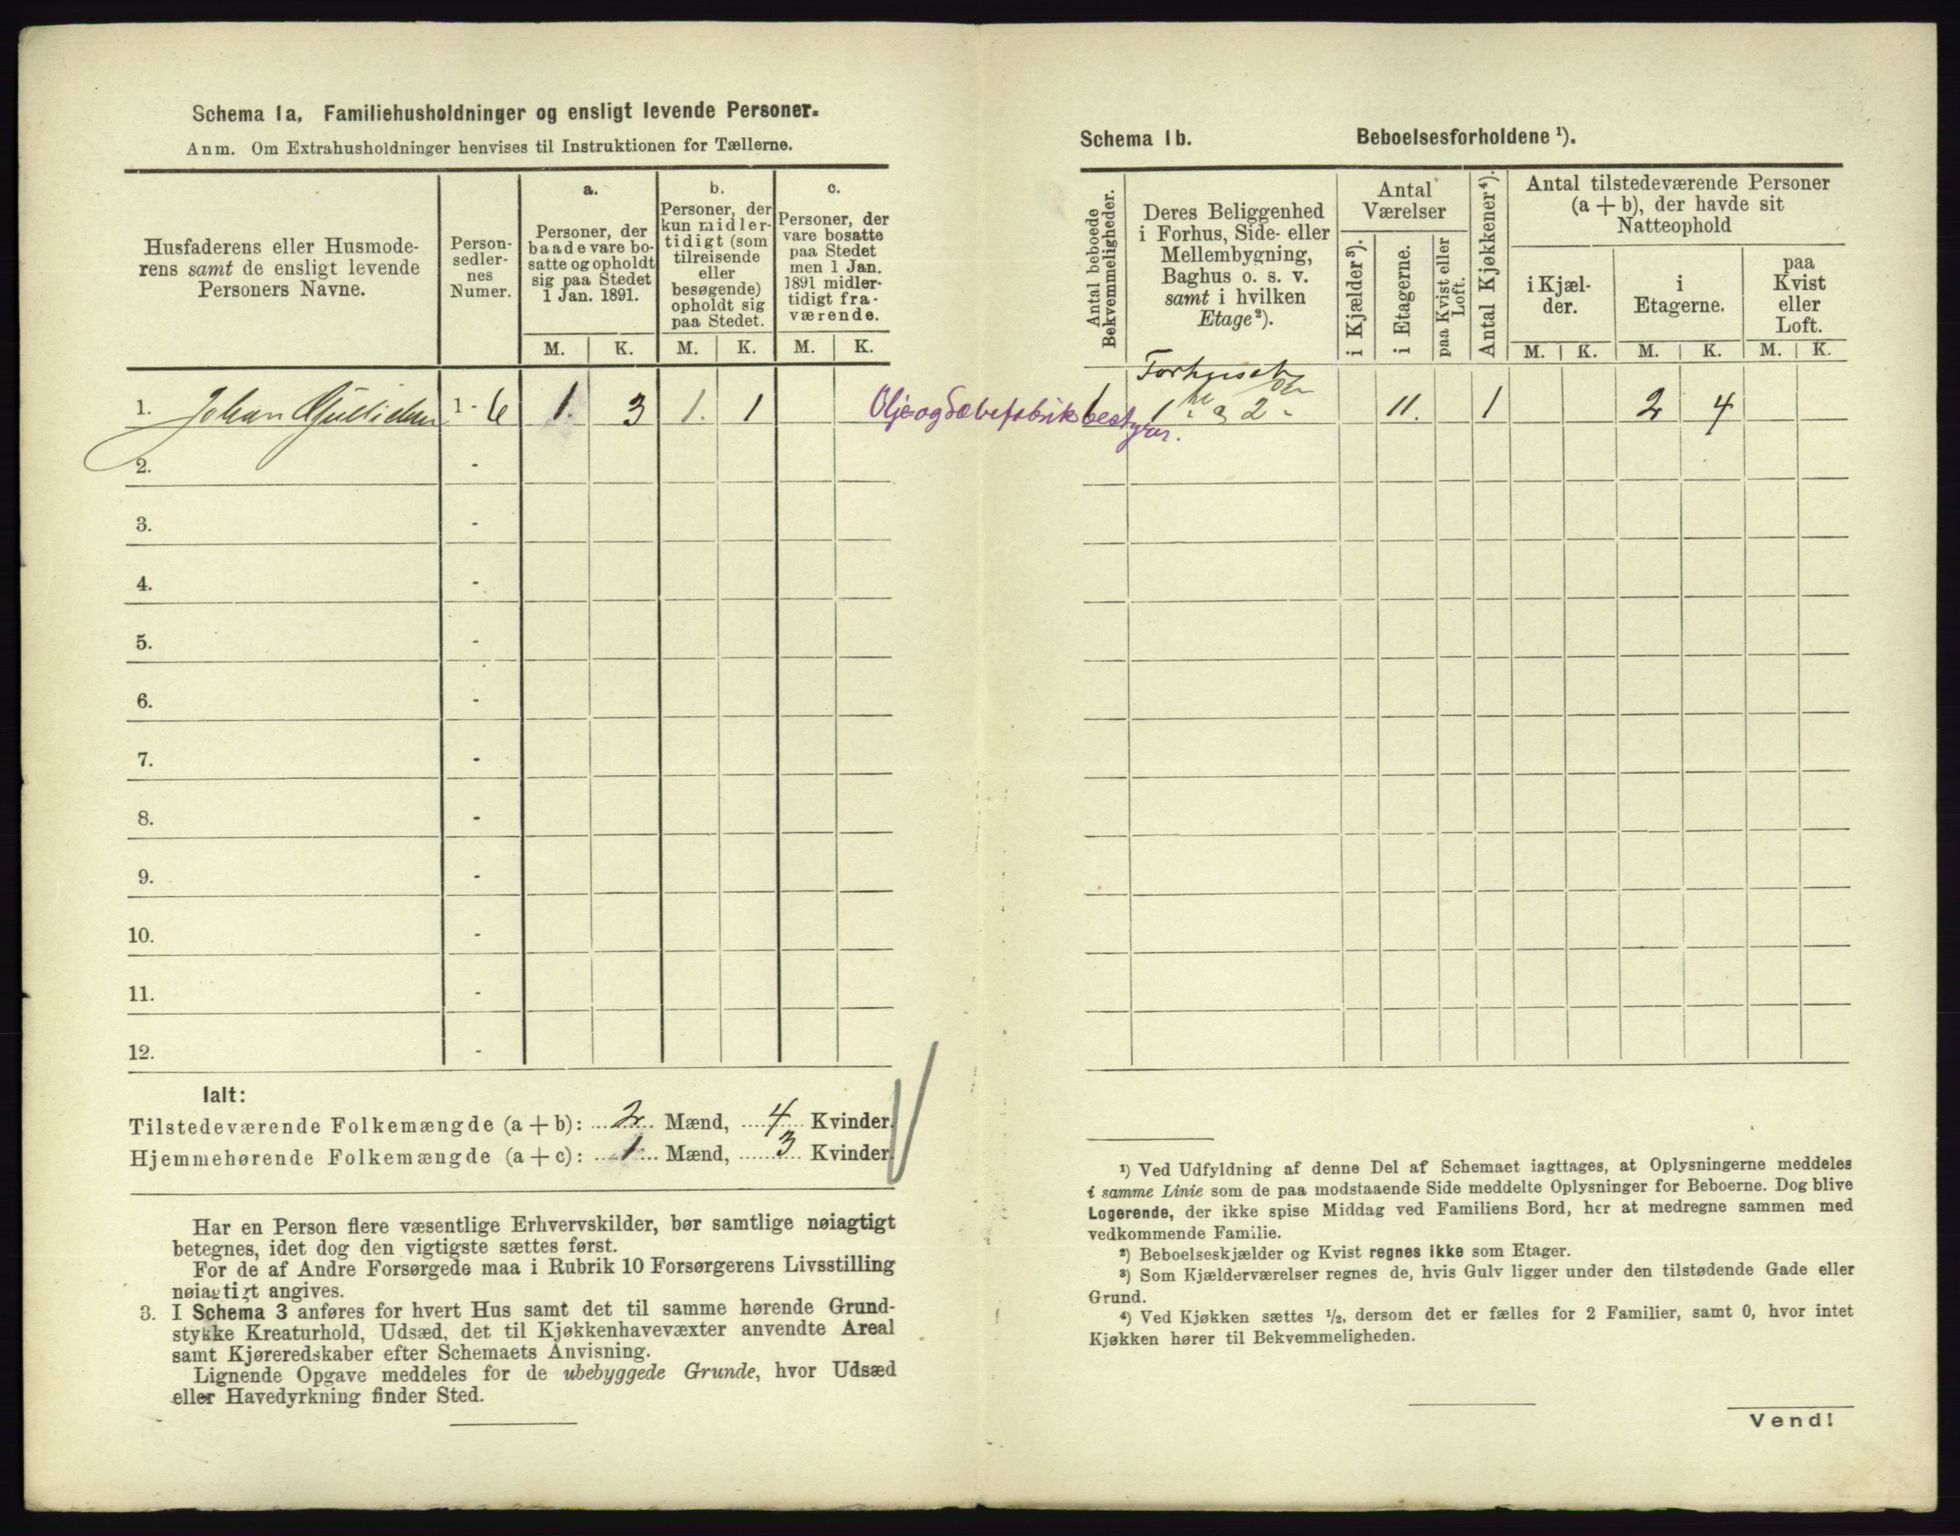 Schema 1a, Familiehusholdninger og ensligt levende Personer.
Anm. Om Extrahusholdninger henvises til Instruktionen for Tællerne.
Husfaderens eller Husmode-
rens samt de ensligt levende
Personers Navne.
Person-
sedler-
nes
Numer.
a.
Personer, der
baade vare bo-
satte og opholdt
sig paa Stedet
1 Jan. 1891.
b.
Personer, der
kun midler-
tidigt (som
tilreisende
eller
besøgende)
opholdt sig
paa Stedet.
c.
Personer, der
vare bosatte
paa Stedet
men 1 Jan.
1891 midler-
tidigt fra-
værende.
M. K. M. K. M. K.
1. Johan 1 - 6 1. 3 1. 1
Olje og Sæbefabrikbestyrer.
2. -
3. -
4. -
5. -
6. -
7. -
8. -
9. -
10. -
11. -
12. -
Ialt:
Tilstedeværende Folkemængde (a + b): 2 Mænd, 4 Kvinder.
Hjemmehørende Folkemængde (a + c): 1 Mænd, 3 Kvinder.
Har en Person flere væsentlige Erhvervskilder, bør samtlige nøiagtigt
betegnes, idet dog den vigtigste sættes først.
For de af Andre Forsørgede maa i Rubrik 10 Forsørgerens Livsstilling
nøiagtigt angives.
3. I Schema 3 anføres for hvert Hus samt det til samme hørende Grund-
stykke Kreaturhold, Udsæd, det til Kjøkkenhavevæxter anvendte Areal
samt Kjøreredskaber efter Schemaets Anvisning.
Lignende Opgave meddeles for de ubebyggede Grunde, hvor Udsæd
eller Havedyrkning finder Sted.
Schema 1b. Beboelsesforholdene ¹).
Antal beboede
Bekvemmeligheder.
Deres Beliggenhed
i Forhus, Side- eller
Mellembygning,
Baghus o. s. v.
samt i hvilken
Etage²).
Antal
Værelser
i Kjælder³).
i Etagerne.
paa Kvist eller
Loft.
Antal Kjøkkener⁴).
Antal tilstedeværende Personer
(a + b), der havde sit
Natteophold
i Kjæl-
der.
i
Etagerne.
paa
Kvist
eller
Loft.
M. K. M. K. M. K.
Forhuset
1 1 2 11. 1 2 4
¹) Ved Udfyldning af denne Del af Schemaet iagttages, at Oplysningerne meddeles
i samme Linie som de paa modstaaende Side meddelte Oplysninger for Beboerne. Dog blive
Logerende, der ikke spise Middag ved Familiens Bord, her at medregne sammen med
vedkommende Familie.
²) Beboelseskjælder og Kvist regnes ikke som Etager.
³) Som Kjælderværelser regnes de, hvis Gulv ligger under den tilstødende Gade eller
Grund.
⁴) Ved Kjøkken sættes ½, dersom det er fælles for 2 Familier, samt 0, hvor intet
Kjøkken hører til Bekvemmeligheden.
Vend!